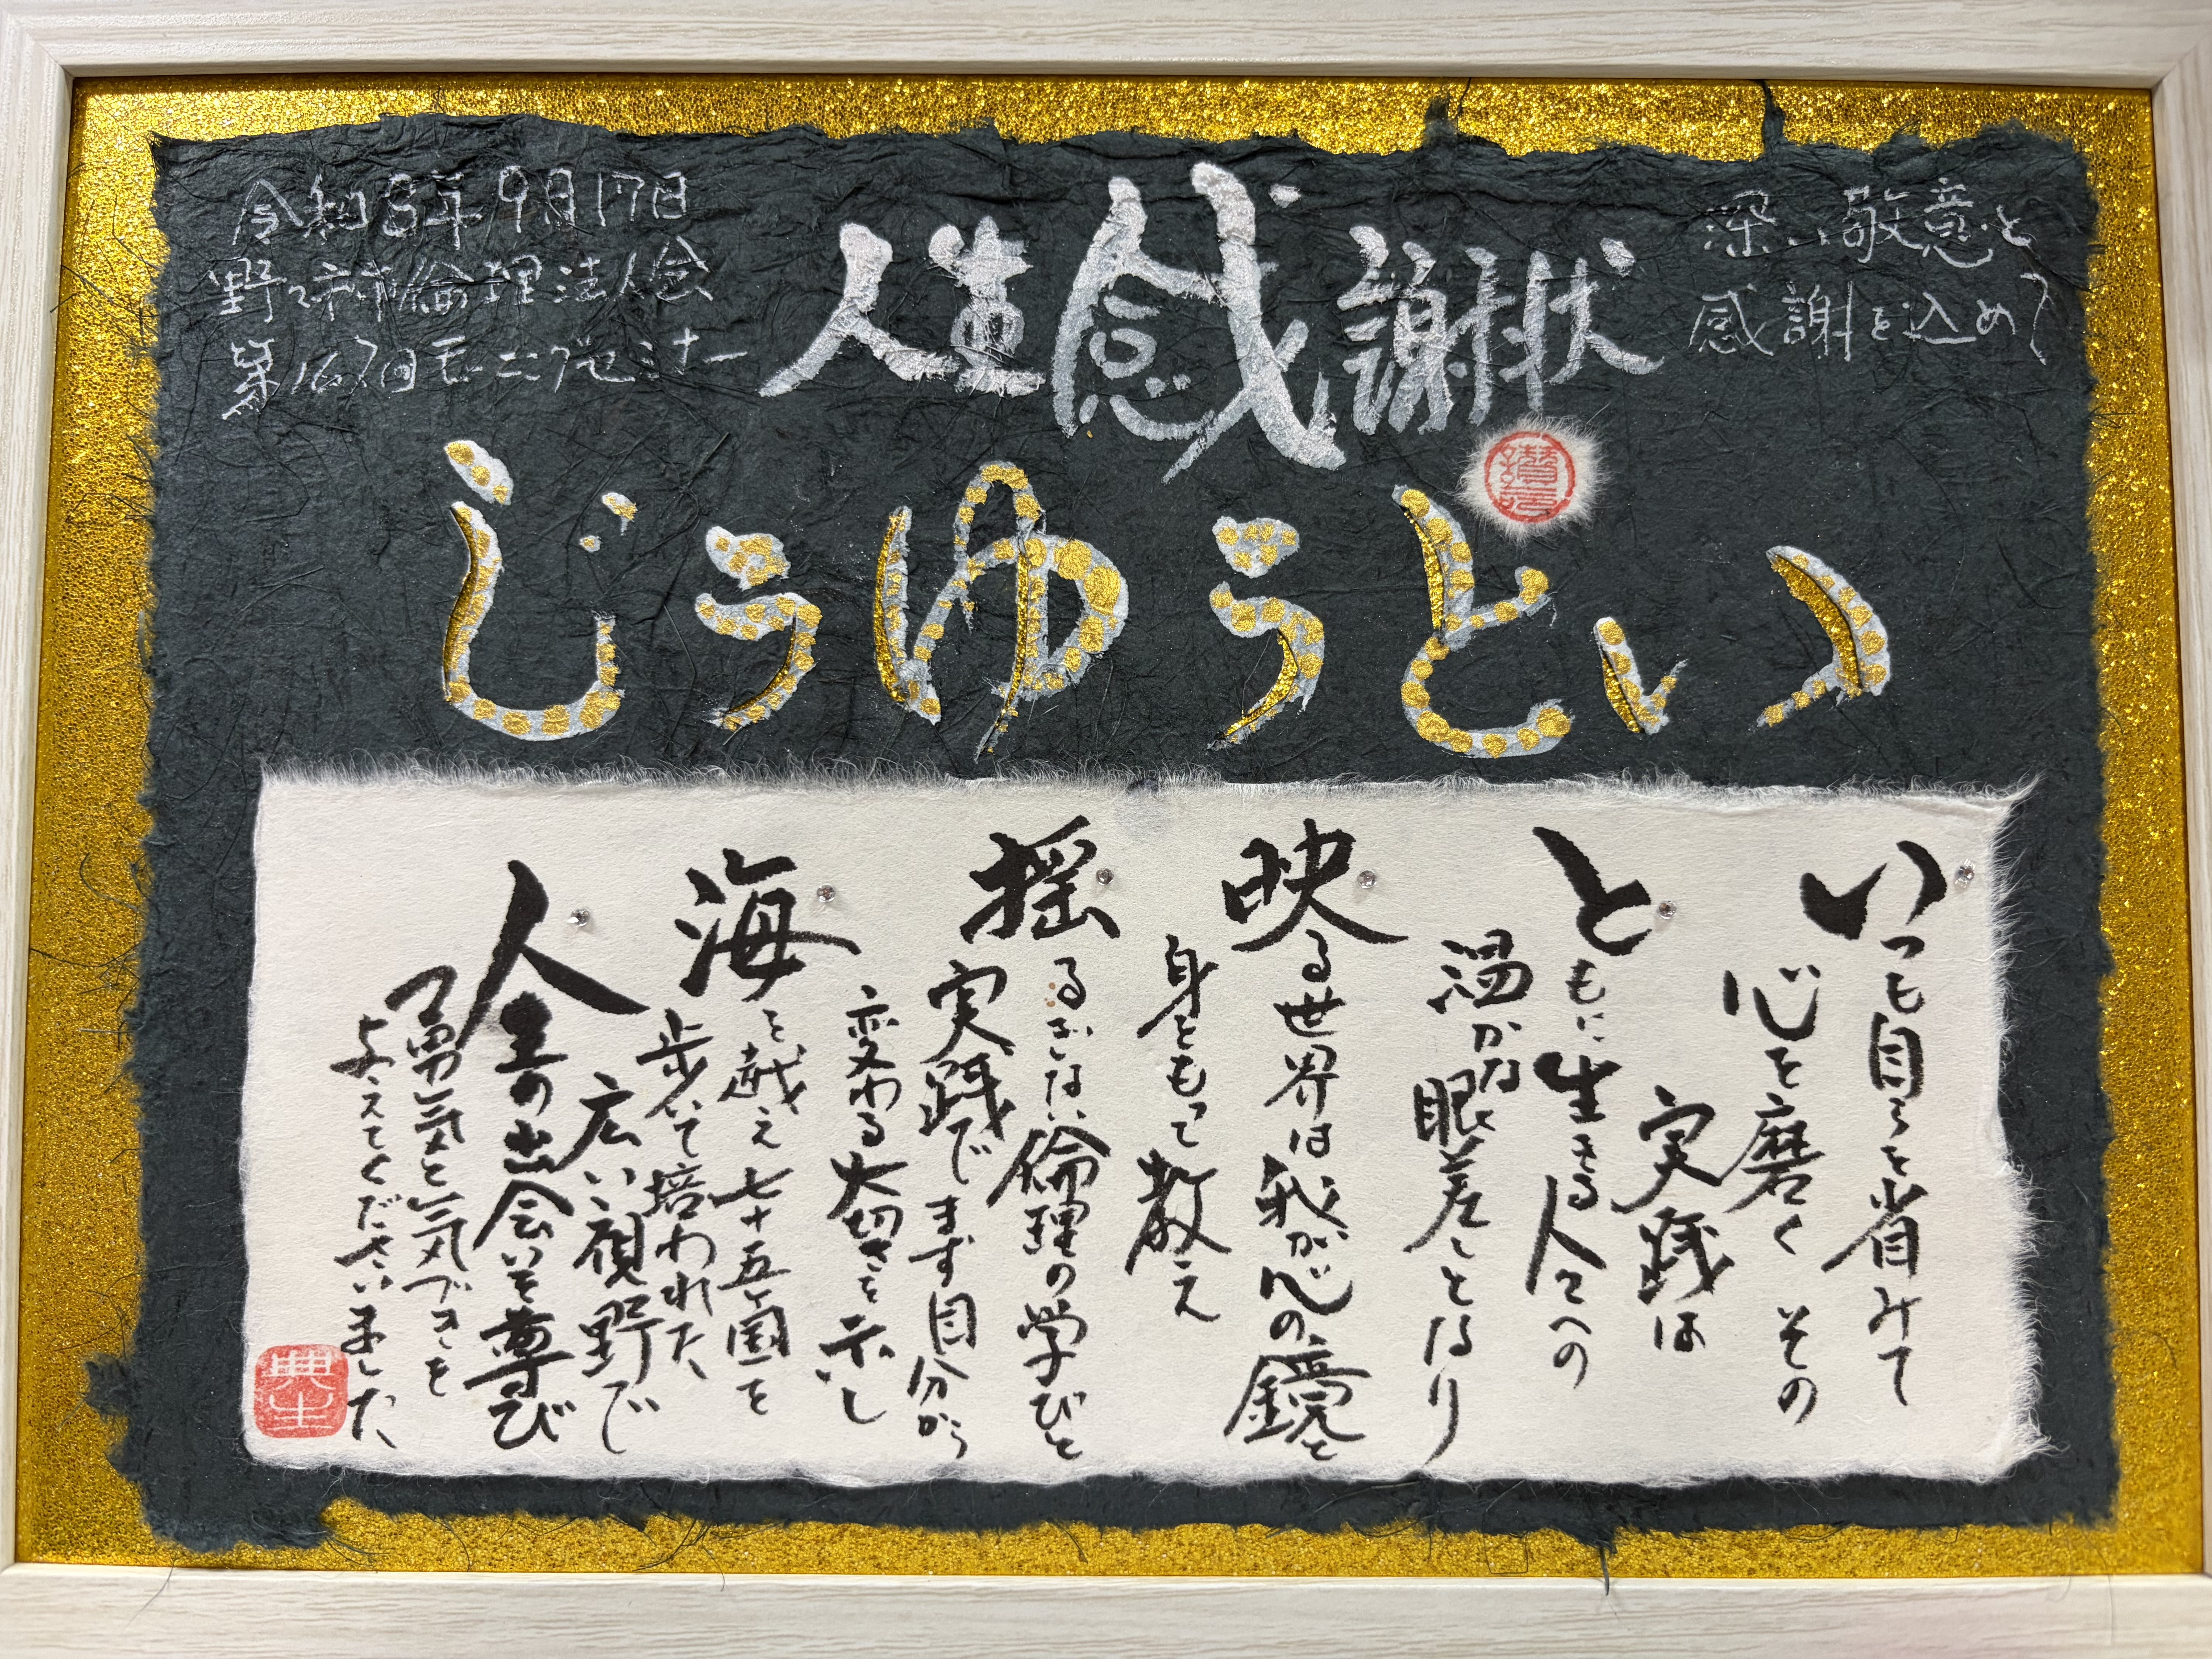 深い敬意と
感謝を込めて
人生感謝状
令和8年9月17日
野々市市倫理法人会
第167回モーニングセミナー
いとうゆうじ
いつも自らを省みて
心を磨く その
実践は
ともに生きる人々への
温かな眼差しとなり
映る世界は我が心の鏡と
身をもって教え
揺るぎない倫理の学びと
実践でまず自分から
変わる大切さを示し
海を越え七十五ヶ国を
歩いて培われた
広い視野で
人生の出会いを尊び
勇気と気づきを
与えてくださいました
典生